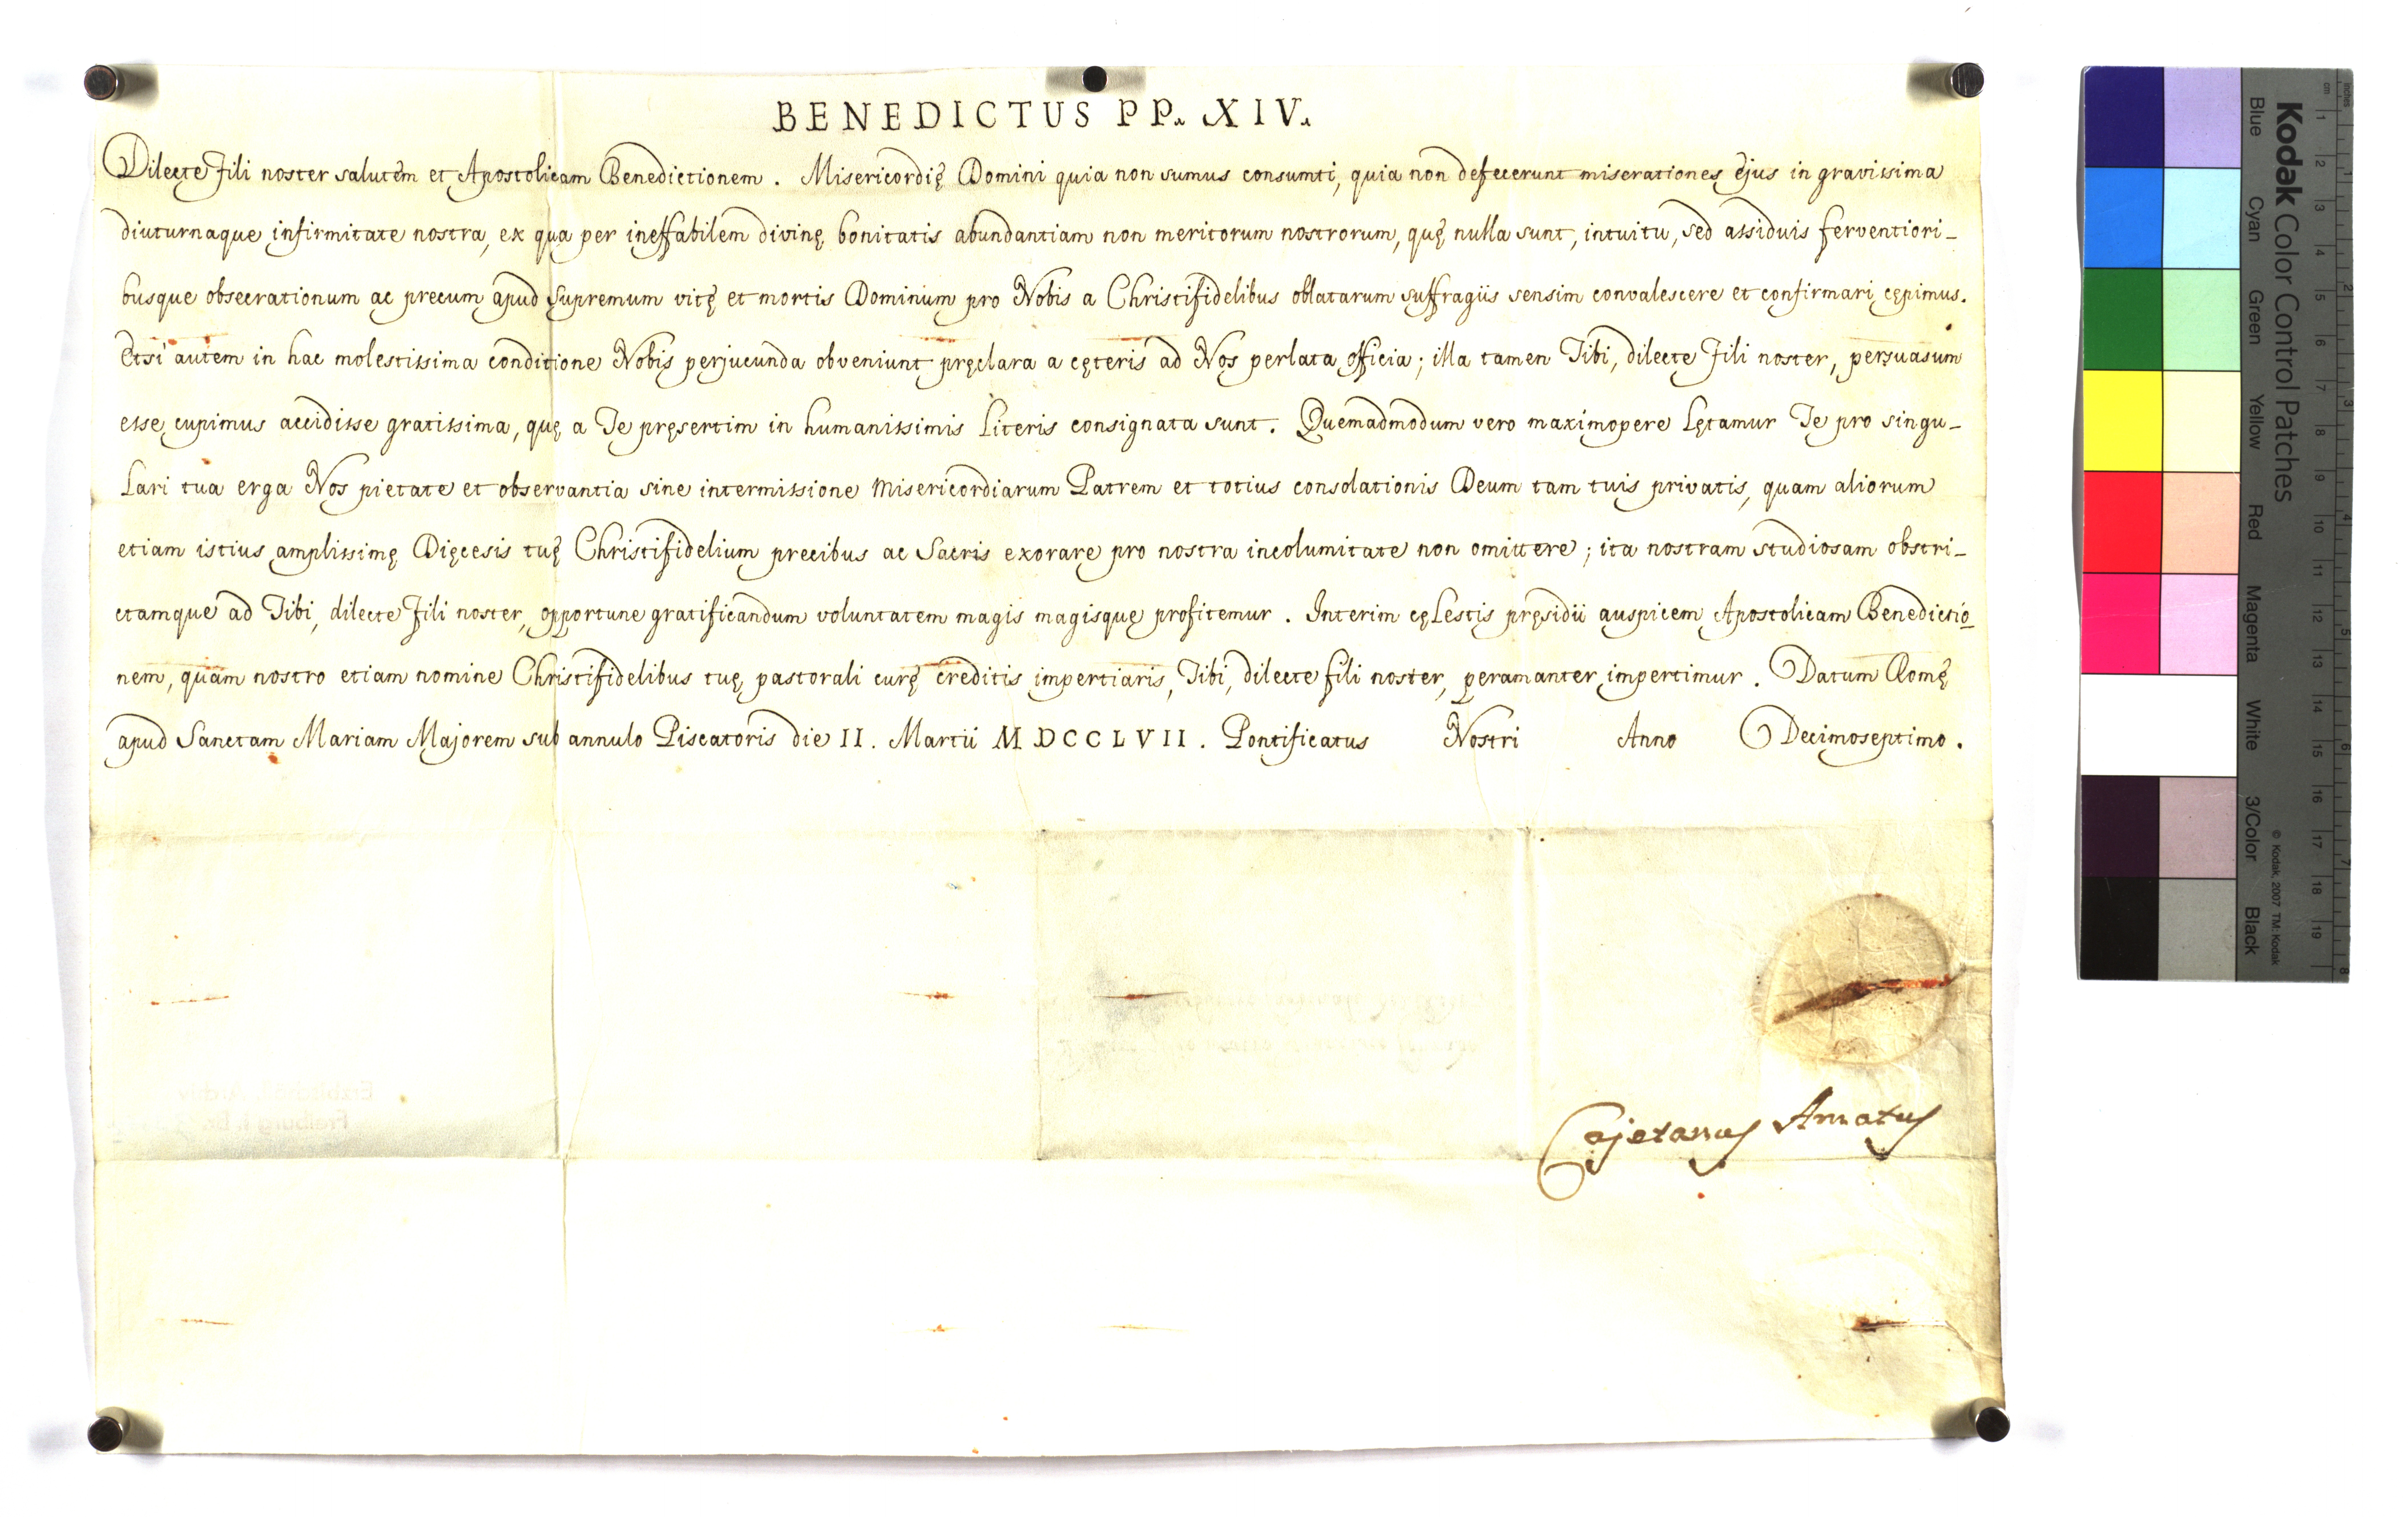 BENEDICTUS PP. XIV.
Dilecte Fili noster salutem et Apostolicam Benedictionem. Misericordię Domini quia non sumus consumti, quia non defecerunt miserationes ejus in gravissima
diuturnaque infirmitate nostra, ex qua per ineffabilem divinę bonitatis abundantiam non meritorum nostrorum, quę nulla sunt, intuitu, sed assiduis ferventiori-
busque obsecrationum ac precum apud Supremum vitę et mortis Dominum pro Nobis a Christifidelibus oblatarum suffragiis sensim convalescere et confirmari cępimus.
Etsi autem in hac molestissima conditione Nobis perjucunda obveniunt pręclara a cęteris ad Nos perlata officia; illa tamen Tibi, dilecte Fili noster, persuasum
esse cupimus accidisse gratissima, quę a Te pręsertim in humanissimis Literis consignata sunt. Quemadmodum vero maximopere Lętamur Te pro singu-
Lari tua erga Nos pietate et observantia sine intermissione Misericordiarum Patrem et totius consolationis Deum tam tuis privatis, quam aliorum
etiam istius amplissimę Dięcesis tuę Christifidelium precibus ac Sacris exorare pro nostra incolumitate non omittere; ita nostram studiosam obstri-
ctamque ad Tibi, dilecte Fili noster, opportune gratificandum voluntatem magis magisque profitemur. Interim cęLestis pręsidii auspicem Apostolicam Benedictio-
nem, quam nostro etiam nomine Christifidelibus tuę pastorali curę creditis impertiaris, Tibi, dilecte fili noster, peramanter impertimur. Datum Romę
apud Sanctam Mariam Majorem sub annulo Piscatoris die II. Martii MDCCLVII. Pontificatus Nostri Anno Decimoseptimo.
Cajetanus Amatus
Erzbischöfl. Archiv
Freiburg i. Br.
Kodak Color Control Patches
Blue Cyan Green Yellow Red Magenta White 3/Color Black
© Kodak, 2007 TM: Kodak
inches 1 2 3 4 5 6 7 8
cm 1 2 3 4 5 6 7 8 9 10 11 12 13 14 15 16 17 18 19